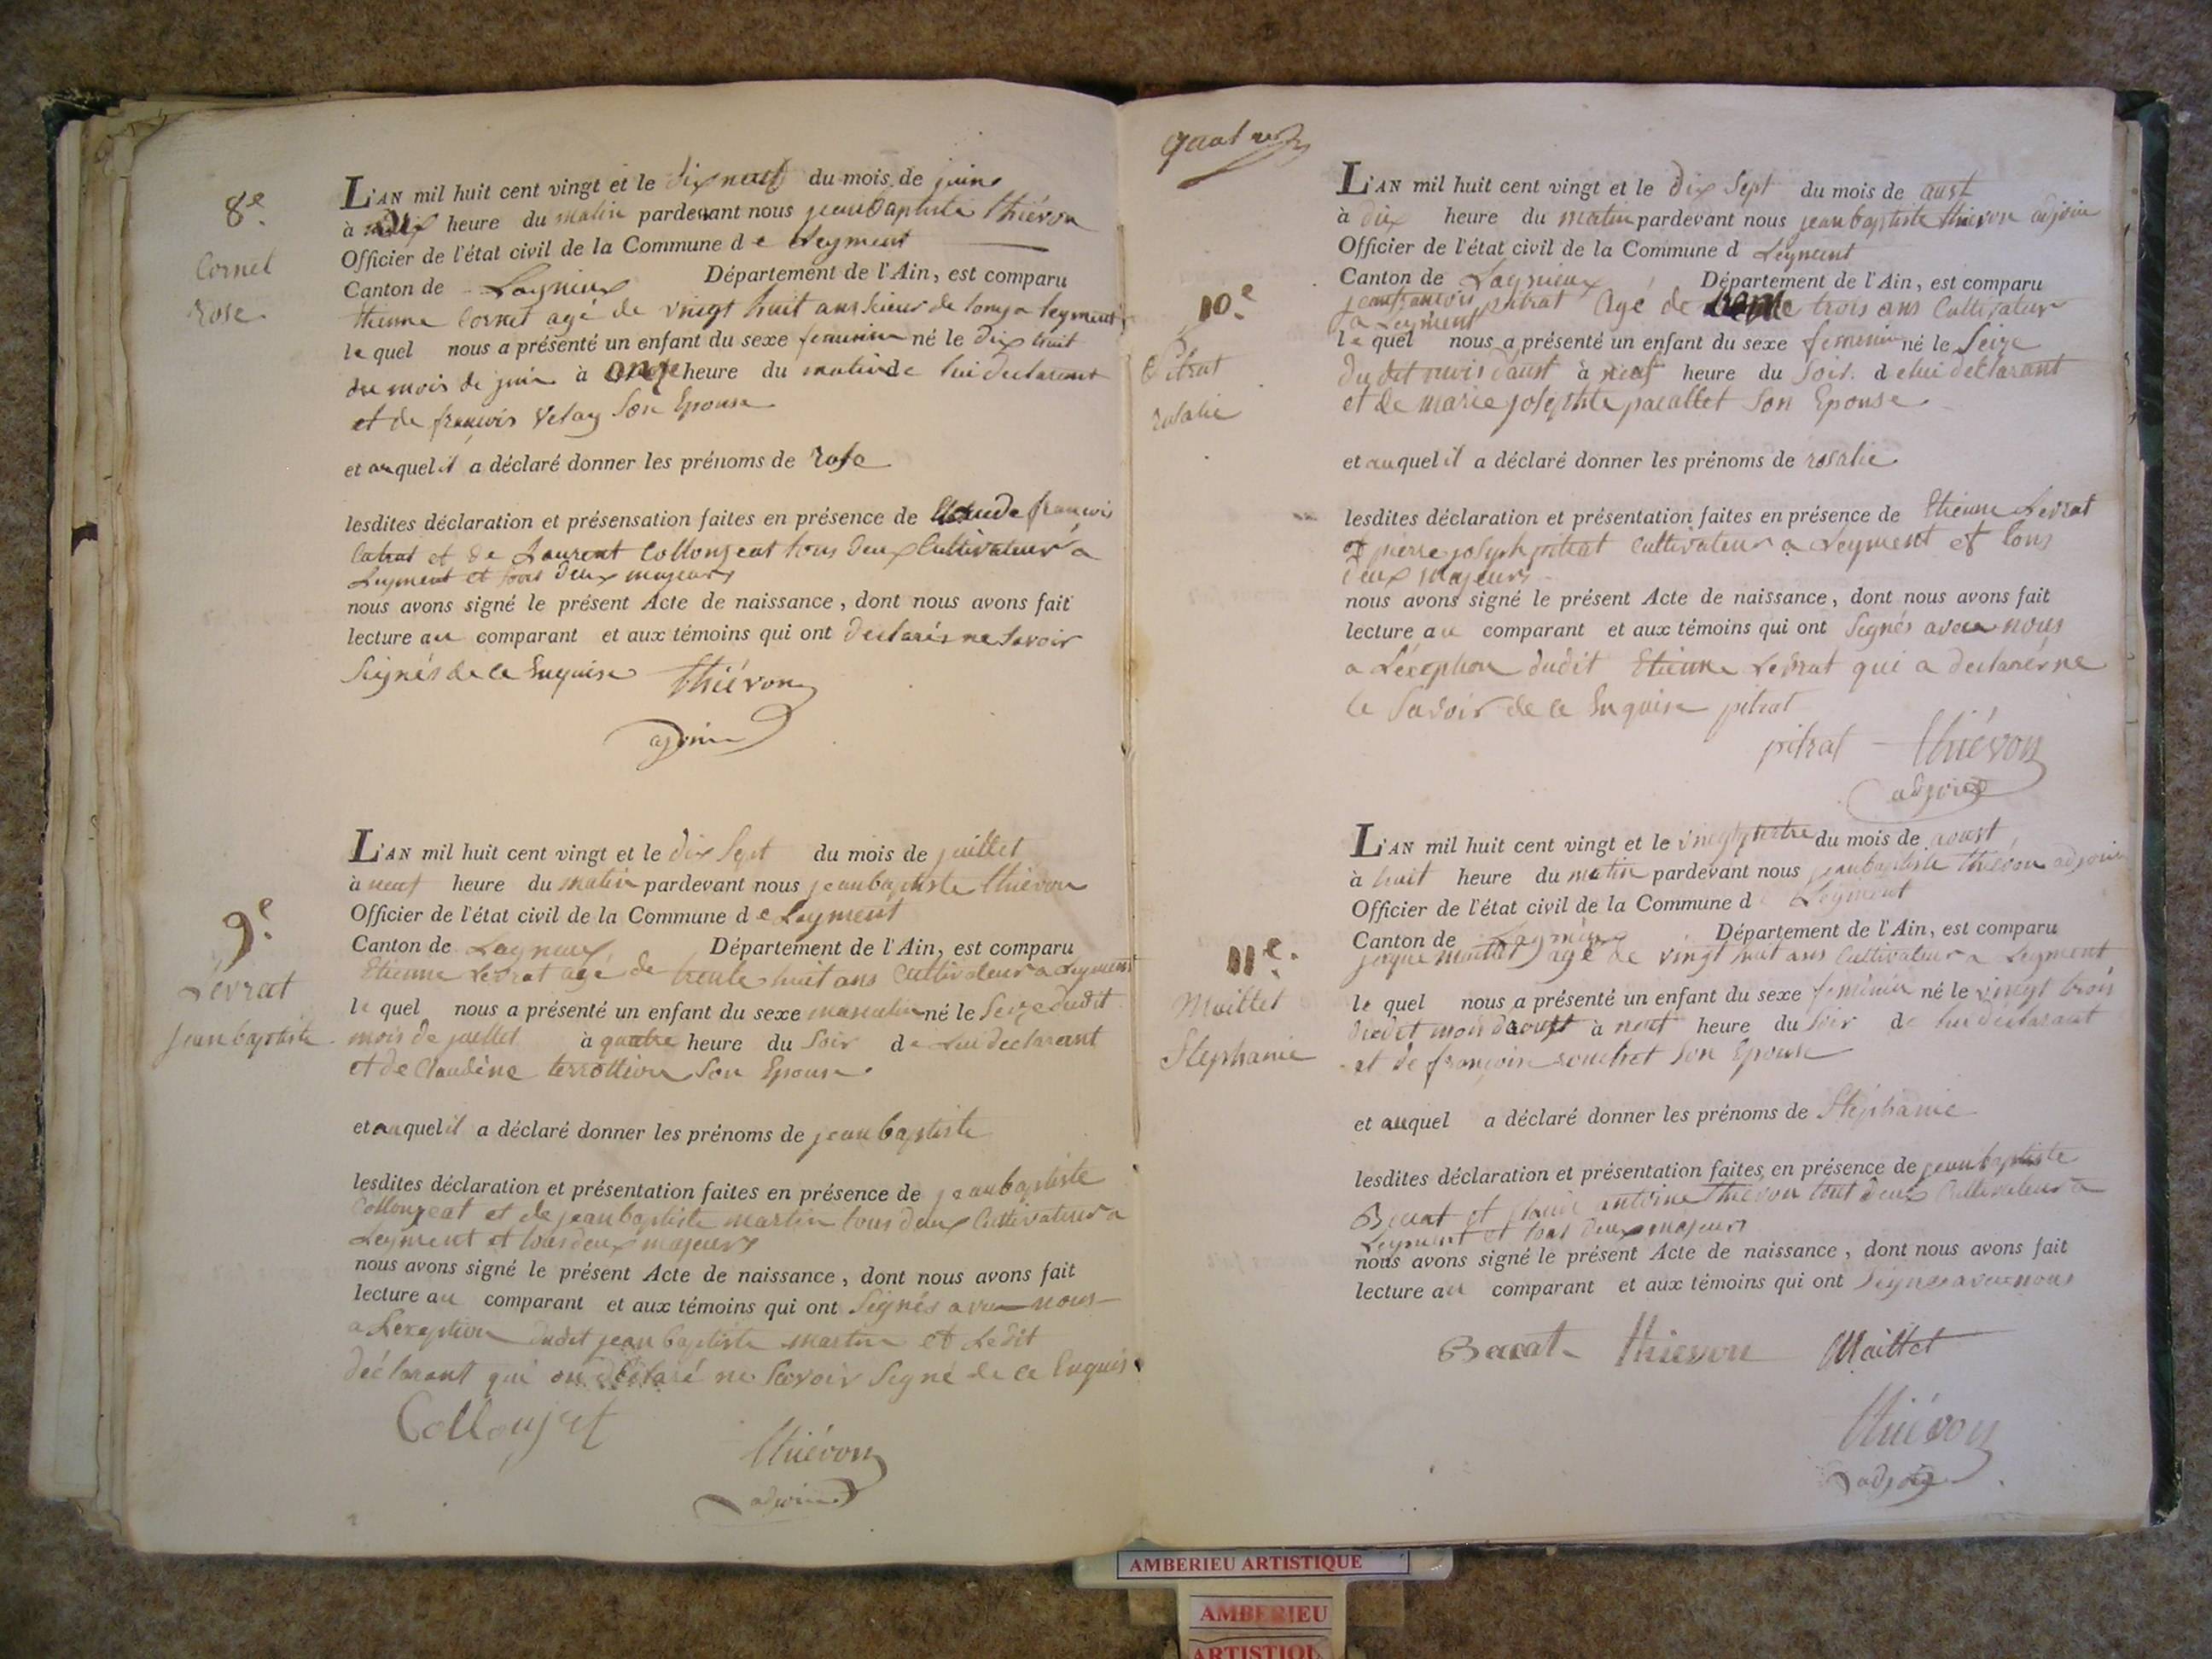 8e.
Cornet
Rose.
L'AN mil huit cent vingt et le dix neuf du mois de juin
à heure du matin pardevant nous jean baptiste thiévon
Officier de l'état civil de la Commune d e Leyment
Canton de Lagnieux Département de l'Ain, est comparu
etienne Cornet agé de vingt huit ans Scieur de long a leyment
le quel nous a présenté un enfant du sexe feminin né le dix huit
du mois de juin à onze heure du matin de lui declarant
et de françois Velay Son Epouse
et auquel il a déclaré donner les prénoms de rose
lesdites déclaration et présensation faites en présence de Claude francois
et de Laurent Collongeat tous deux Cultivateur a
Leyment et tous deux majeurs
nous avons signé le présent Acte de naissance, dont nous avons fait
lecture au comparant et aux témoins qui ont declarés ne Savoir
Signés de ce Enquise thiévon
adjoint
9e.
Levrat
jean baptiste
L'AN mil huit cent vingt et le dix Sept du mois de juillet
à neuf heure du matin pardevant nous jean baptiste thiévon
Officier de l'état civil de la Commune d e Leyment
Canton de Lagnieux Département de l'Ain, est comparu
Etienne Levrat agé de trente huit ans Cultivateur a Leyment
le quel nous a présenté un enfant du sexe masculin né le Seize dudit
mois de juillet à quatre heure du Soir de Lui declarant
et de Claudine terrottion Son Epouse.
et auquel il a déclaré donner les prénoms de jean baptiste
lesdites déclaration et présentation faites en présence de jean baptiste
Collongeat et de jean baptiste martin tous deux Cultivateur a
Leyment et tous deux majeurs
nous avons signé le présent Acte de naissance, dont nous avons fait
lecture au comparant et aux témoins qui ont Signés avec nous
a Lexeption dudit jean baptiste martin et Ledit
déclarant qui on déclaré ne Savoir Signé de ce Enquis
Collonjat
thiévon
adjoint
quatre
10e.
Pitrat
rosalie
L'AN mil huit cent vingt et le dix Sept du mois de aust
à dix heure du matin pardevant nous jean baptiste thievon adjoin
Officier de l'état civil de la Commune d Leyment
Canton de Lagnieux Département de l'Ain, est comparu
jean francois pitrat Agé de trente trois ans Cultivateur
a Leyment
le quel nous a présenté un enfant du sexe feminin né le Seize
du dit mois d'aust à neuf heure du Soir. d e lui déclarant
et de marie josephte pacallet Son Epouse
et auquel il a déclaré donner les prénoms de rosalie
lesdites déclaration et présentation faites en présence de Etienne Levrat
et pierre joseph pitrat Cultivateur a Leyment et tous
deux majeurs
nous avons signé le présent Acte de naissance, dont nous avons fait
lecture au comparant et aux témoins qui ont Signés avec nous
a Léxeption dudit Etienne Levrat qui a declarér ne
le Savoir de ce Enquise pitrat
pitrat thiévon
adjoint
11e.
Maillet
Stephanie
L'AN mil huit cent vingt et le vingt quatre du mois de aoust
à huit heure du matin pardevant nous jean baptiste thiévon adjoin
Officier de l'état civil de la Commune d e Leyment
Canton de Lagnieux Département de l'Ain, est comparu
jaque maillet agé de vingt huit ans Cultivateur a Leyment
le quel nous a présenté un enfant du sexe feminin né le vingt trois
dudit mois d'aoust à neuf heure du Soir de lui declarant
et de françoise Son Epouse
et auquel a déclaré donner les prénoms de Stéphanie
lesdites déclaration et présentation faites en présence de jean baptiste
Bacat et antoine thiévon tout deux Cultivateur a
Leyment et tous deux majeurs
nous avons signé le présent Acte de naissance, dont nous avons fait
lecture au comparant et aux témoins qui ont Signés avec nous
Bacat thievon Maillet
thiévon
adjoint
AMBERIEU ARTISTIQUE
AMBERIEU
ARTISTIQU